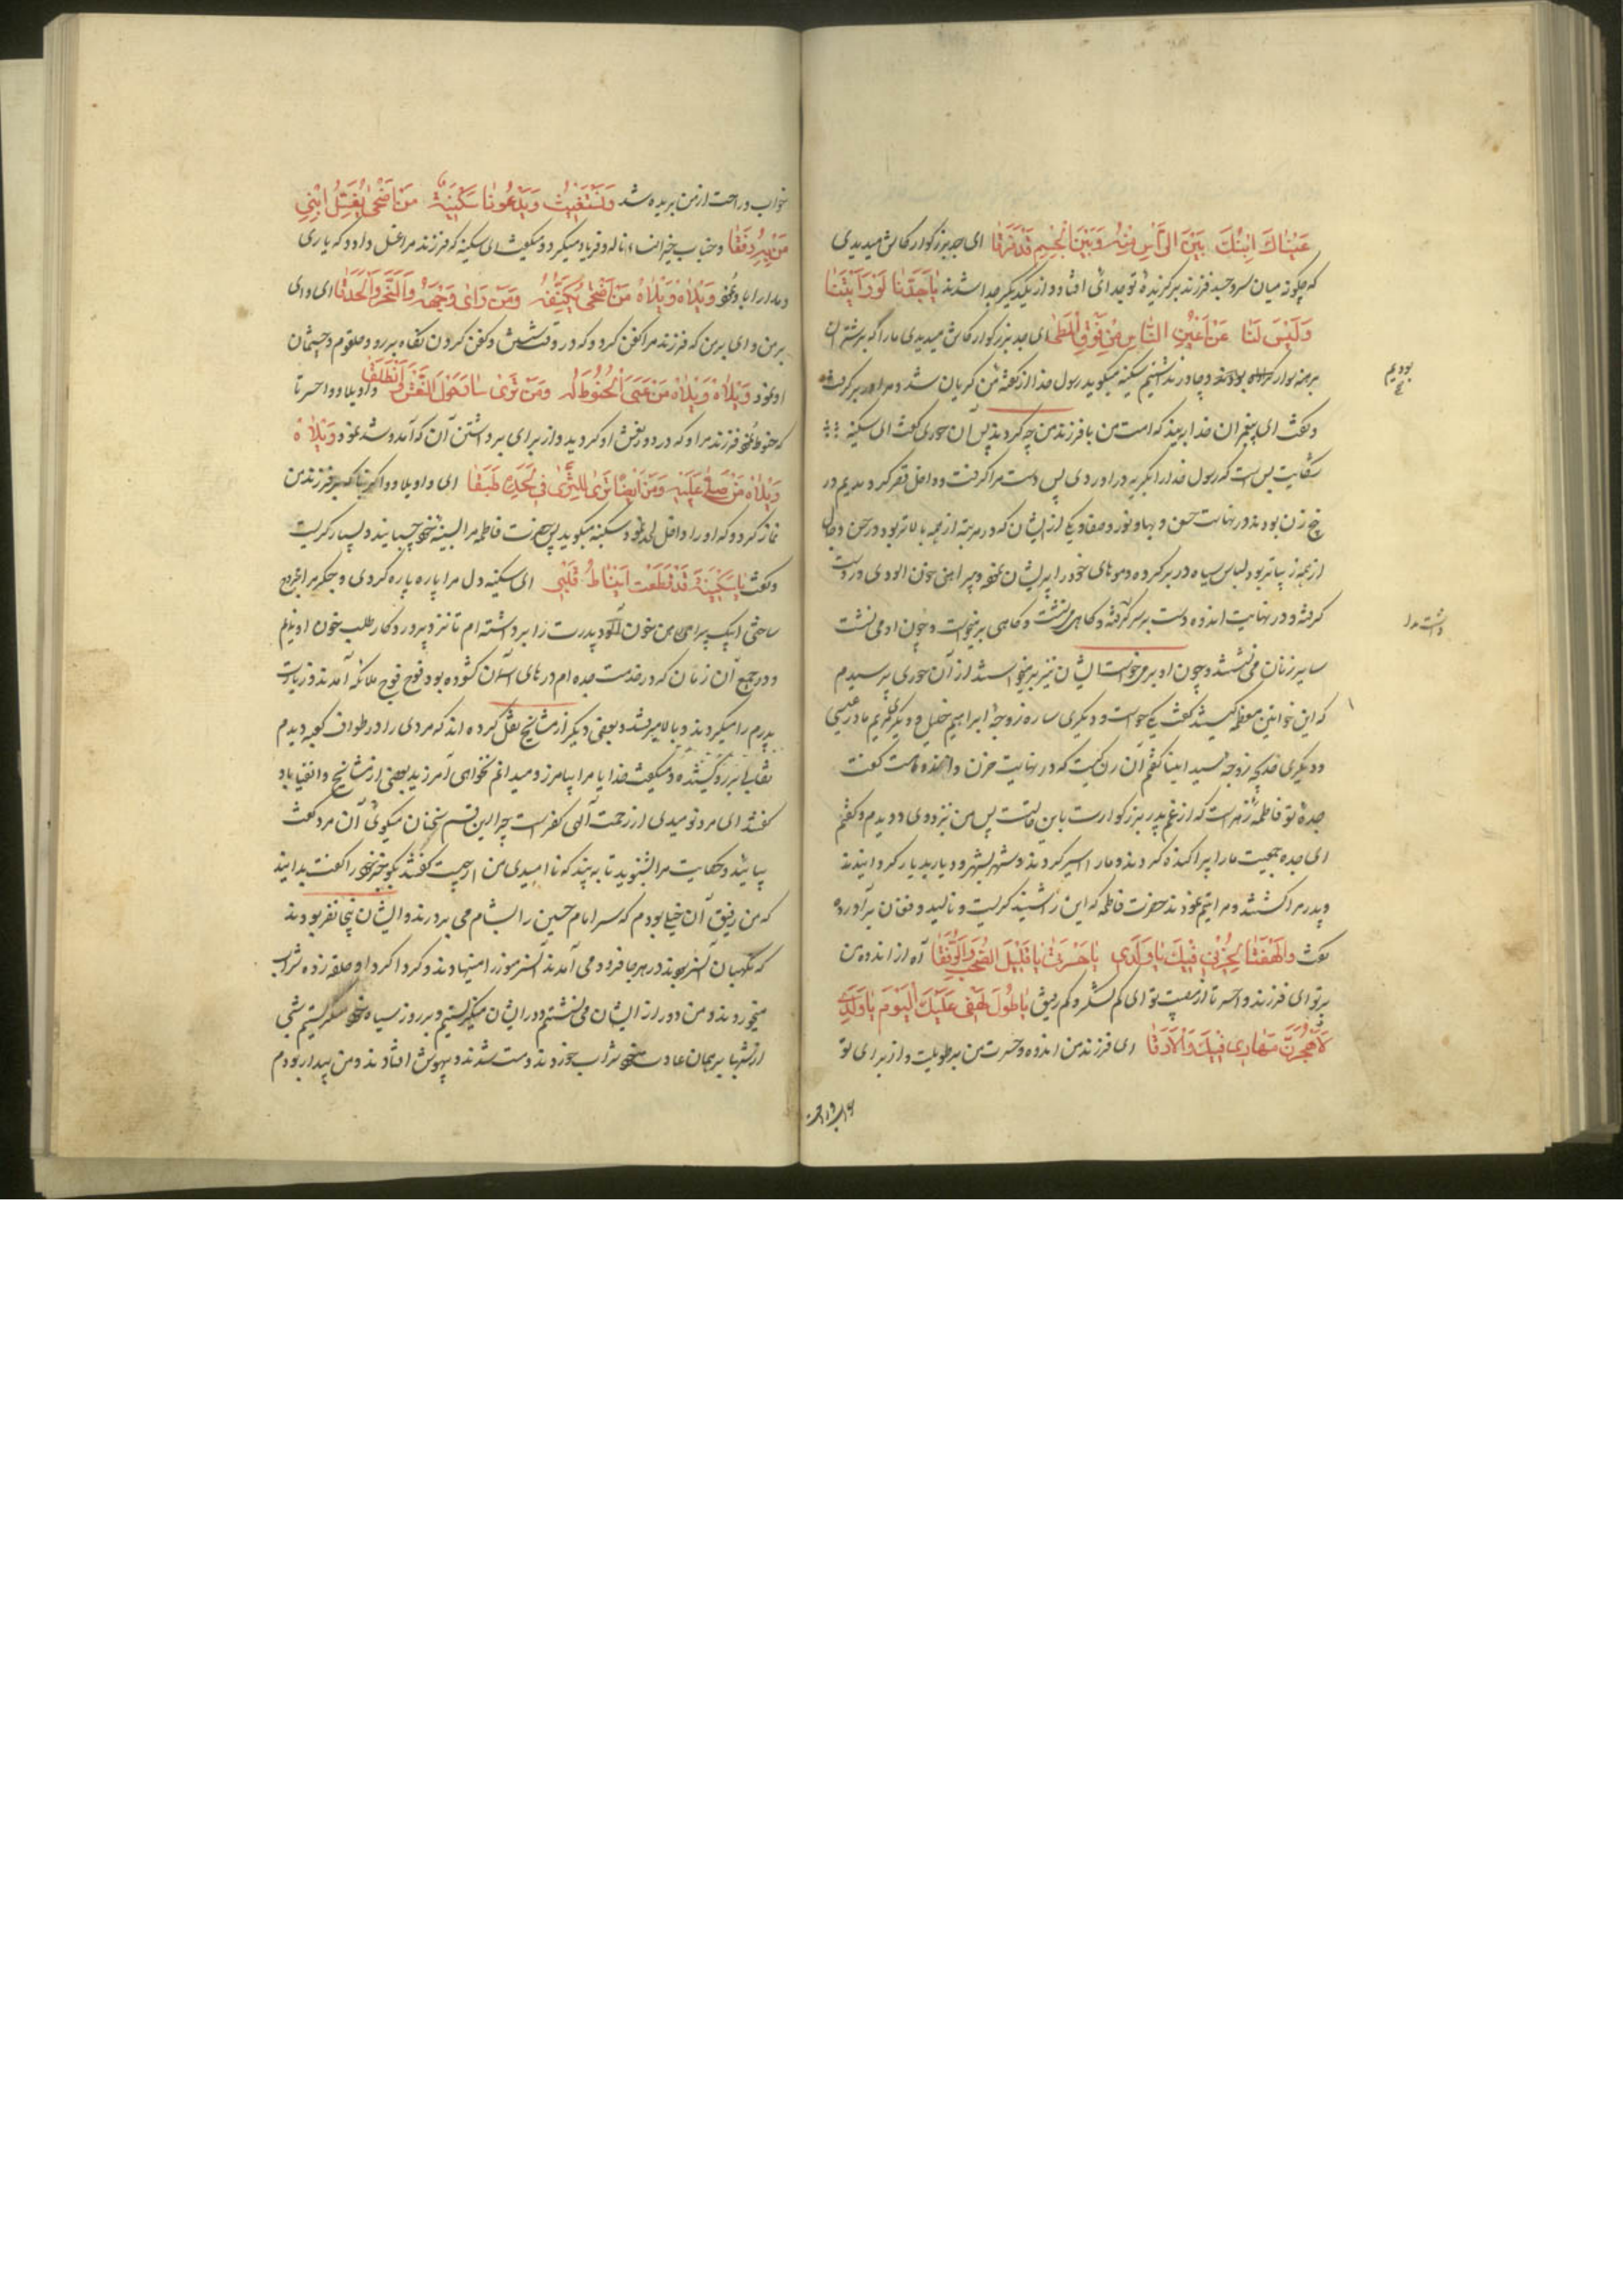 عَیْنَاكَ اِبْنُكَ بَیْنَ الرَّاْسِ مِنْهُ وَبَیْنَ الْجِسْمِ قَدْ فَرَقَا ای جد بزرگوار کاش میدیدی
که چگونه میان سر و جسد فرزند برگزیدهٔ تو جدائی افتاده و از یکدیگر جدا شدند یَا جَدَّنَا لَوْ رَاَیْتَنَا
وَلَیْسَ لَنَا عَنْ اَعْیُنِ النَّاسِ مِنْ فَوْقِ ای جد بزرگوار کاش میدیدی ما را که بر شتران
برهنه سوار و چادر نداشتیم سکینه میگوید رسول خدا از گفتهٔ من گریان شد و مرا در بر گرفت
بودیم
و گفت ای پیغمبران خدا ببینید که امت من با فرزند من چه کردند پس آن حوری گفت ای سکینه
شکایت بس است که رسول خدا را بگریه در آوردی پس دست مرا گرفت و داخل قصر کرد دیدیم در
پنج زن بودند در نهایت حسن و بها و نور و صفا و یکی از ایشان که در مرتبه از همه بالاتر بود و در حسن و جمال
از همه زیباتر بود لباس سیاه در بر کرده و موهای خود را پریشان نموده و پیراهن خون آلودی در دست
گرفته و در نهایت اندوه دست بر سر گرفته و گاهی می نشست و گاهی بر میخواست و چون او می نشست
سایر زنان می نشستند و چون او بر میخواست ایشان نیز بر میخواستند از آن حوری پرسیدم
که این خواتین معظمه کیستند گفت یکی حواست و دیگری ساره زوجهٔ ابراهیم خلیل و دیگری مریم مادر عیسی
و دیگری خدیجه زوجه سید انبیا گفتم آن زن کیست که در نهایت حزن و اندوه است گفت
جدهٔ تو فاطمه زهراست که از غم پدر بزرگوارت باین حالت پس من نزد وی دویدم و گفتم
ای جده جمعیت ما را پراکنده کردند و ما را اسیر کردند و شهر بشهر و دیار بدیار گردانیدند
و پدر مرا کشتند و مرا یتیم نمودند حضرت فاطمه که این را شنید گریست و نالید و فغان برآورد
گفت وَالَهْفَتَا لِحُزْنِی فِیْكَ یَا وَلَدِی یَا حَسْرَتِی یَا قَلِیْلَ الصَّحْبِ وَالرُّفَقَا آه از اندوه من
بر تو ای فرزند و احسرتا از مصیبت تو ای کم لشکر و کم رفیق یَا طُوْلَ لَهْفِی عَلَیْكَ الْیَوْمَ یَا وَلَدِی
لَاَهْجُرَنَّ مِهَادِی فِیْكَ ای فرزند من اندوه و حسرت من بر تو طویلست و از برای تو
خواب و راحت
خواب و راحت از من بریده شد وَتَسْتَغِیْثُ وَیَدْعُوْنَا سَکِیْنَةُ مَنْ اَضْحٰی یُغَسِّلُ اِبْنِی
و جناب خیر النساء ناله و فریاد میکرد و میگفت ای سکینه که فرزند مرا غسل داد و که یاری
و مدد او را نمود وَیْلَاهُ وَیْلَاهُ مَنْ اَضْحٰی یُکَفِّنُهُ وَمَنْ رَاٰی وَجْهَهُ وَالنَّحْرَ وَالْحَدَقَا ای وای
بر من و ای بر من که فرزند مرا کفن کرد و که در وقت شستن و کفن کردن نگاه برو و حلقوم و چشمان
او نمود وَیْلَاهُ وَیْلَاهُ مَنْ عَبَّی الْحَنُوْطَ لَهُ وَمَنْ تَرٰی واویلا و واحسرتا
که حنوط نمود فرزند مرا و که در دور نعش او گردید و از برای برداشتن آن که آمد و شد نمود وَیْلَاهُ
وَیْلَاهُ مَنْ صَلّٰی عَلَیْهِ وَمَنْ اَیْضًا تَرٰی لِلثَّرٰی فِی لَحْدِهِ طَبَقَا ای واویلا بر فرزند من
نماز کرد و که او را داخل لحد نمود سکینه میگوید پس حضرت فاطمه مرا بسینه خود چسبانید و بسیار گریست
و گفت یَا سَکِیْنَةُ قَدْ قَطَعْتِ اَیْضًا قَلْبِی ای سکینه دل مرا پاره پاره کردی و جگر مرا مجروح
ساختی اینک پیراهن خون آلود پدرت را برداشته ام تا نزد پروردگار طلب خون او نمایم
و در جمیع آن زمان که در خدمت جده ام درهای آسمان گشوده بود فوج فوج ملائکه آمدند و زیارت
پدرم را میکردند و بالا میرفتند و بعضی دیگر از مشایخ نقل کرده اند که مردی را در طواف کعبه دیدم
نقابی بر رو کشیده و میگفت خدایا مرا بیامرز و میدانم نخواهی آمرزید بعضی از مشایخ و اتقیا باو
گفتند ای مرد نومیدی از رحمت آلهی کفر است چرا این قسم سخنان میگوئی آن مرد گفت
بیائید و حکایت مرا بشنوید تا ببینید که ناامیدی من از چیست گفتند بگو خبر خود را گفت بدانید
که من رفیق آن خیلی بودم که سر امام حسین را بشام می بردند و ایشان پنجاه نفر بودند
که نگهبان آنسر بودند در هر جا فرود می آمدند آنسر منور را مینهادند و گرداگرد او حلقه زده شراب
میخوردند و من دور از ایشان می نشستم و در ایشان مینگریستم و بر روز سیاه خود میگریستم شبی
از شبها بر همان عادت خود شراب خوردند و مست شدند و بیهوش افتادند و من بیدار بودم